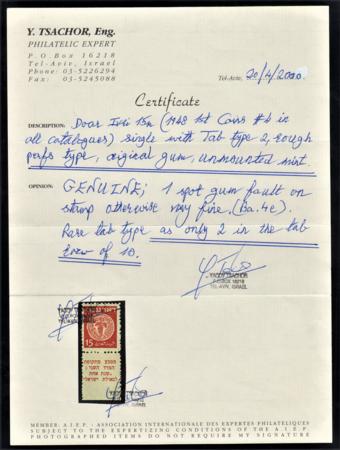 Y. TSACHOR, Eng.
PHILATELIC EXPERT
P.O.Box 16218
Tel-Aviv, Israel
Phone: 03-5226294
Fax: 03-5245088
Tel-Aviv, 20/4/2000
Certificate
DESCRIPTION: Doar Ivri 15m (1948 1st Coins #4 in
all catalogues) single with Tab type 2, rough
perfs type, original gum, unmounted mint.
OPINION: GENUINE; 1 spot gum fault on
stamp otherwise very fine. (Ba.4e).
Rare tab type as only 2 in the tab
row of 10.
YACOV TSACHOR
P.O.BOX 16218
TEL-AVIV, ISRAEL
דאר עברי
15
מטבע מתקופת
המרד השני
שנת אחת
לגאולת ישראל
MEMBER: A.I.E.P. - ASSOCIATION INTERNATIONALE DES EXPERTES PHILATELIQUES
SUBJECT TO THE EXPERTIZING CONDITIONS OF THE A.I.E.P.
PHOTOGRAPHED ITEMS DO NOT REQUIRE MY SIGNATURE